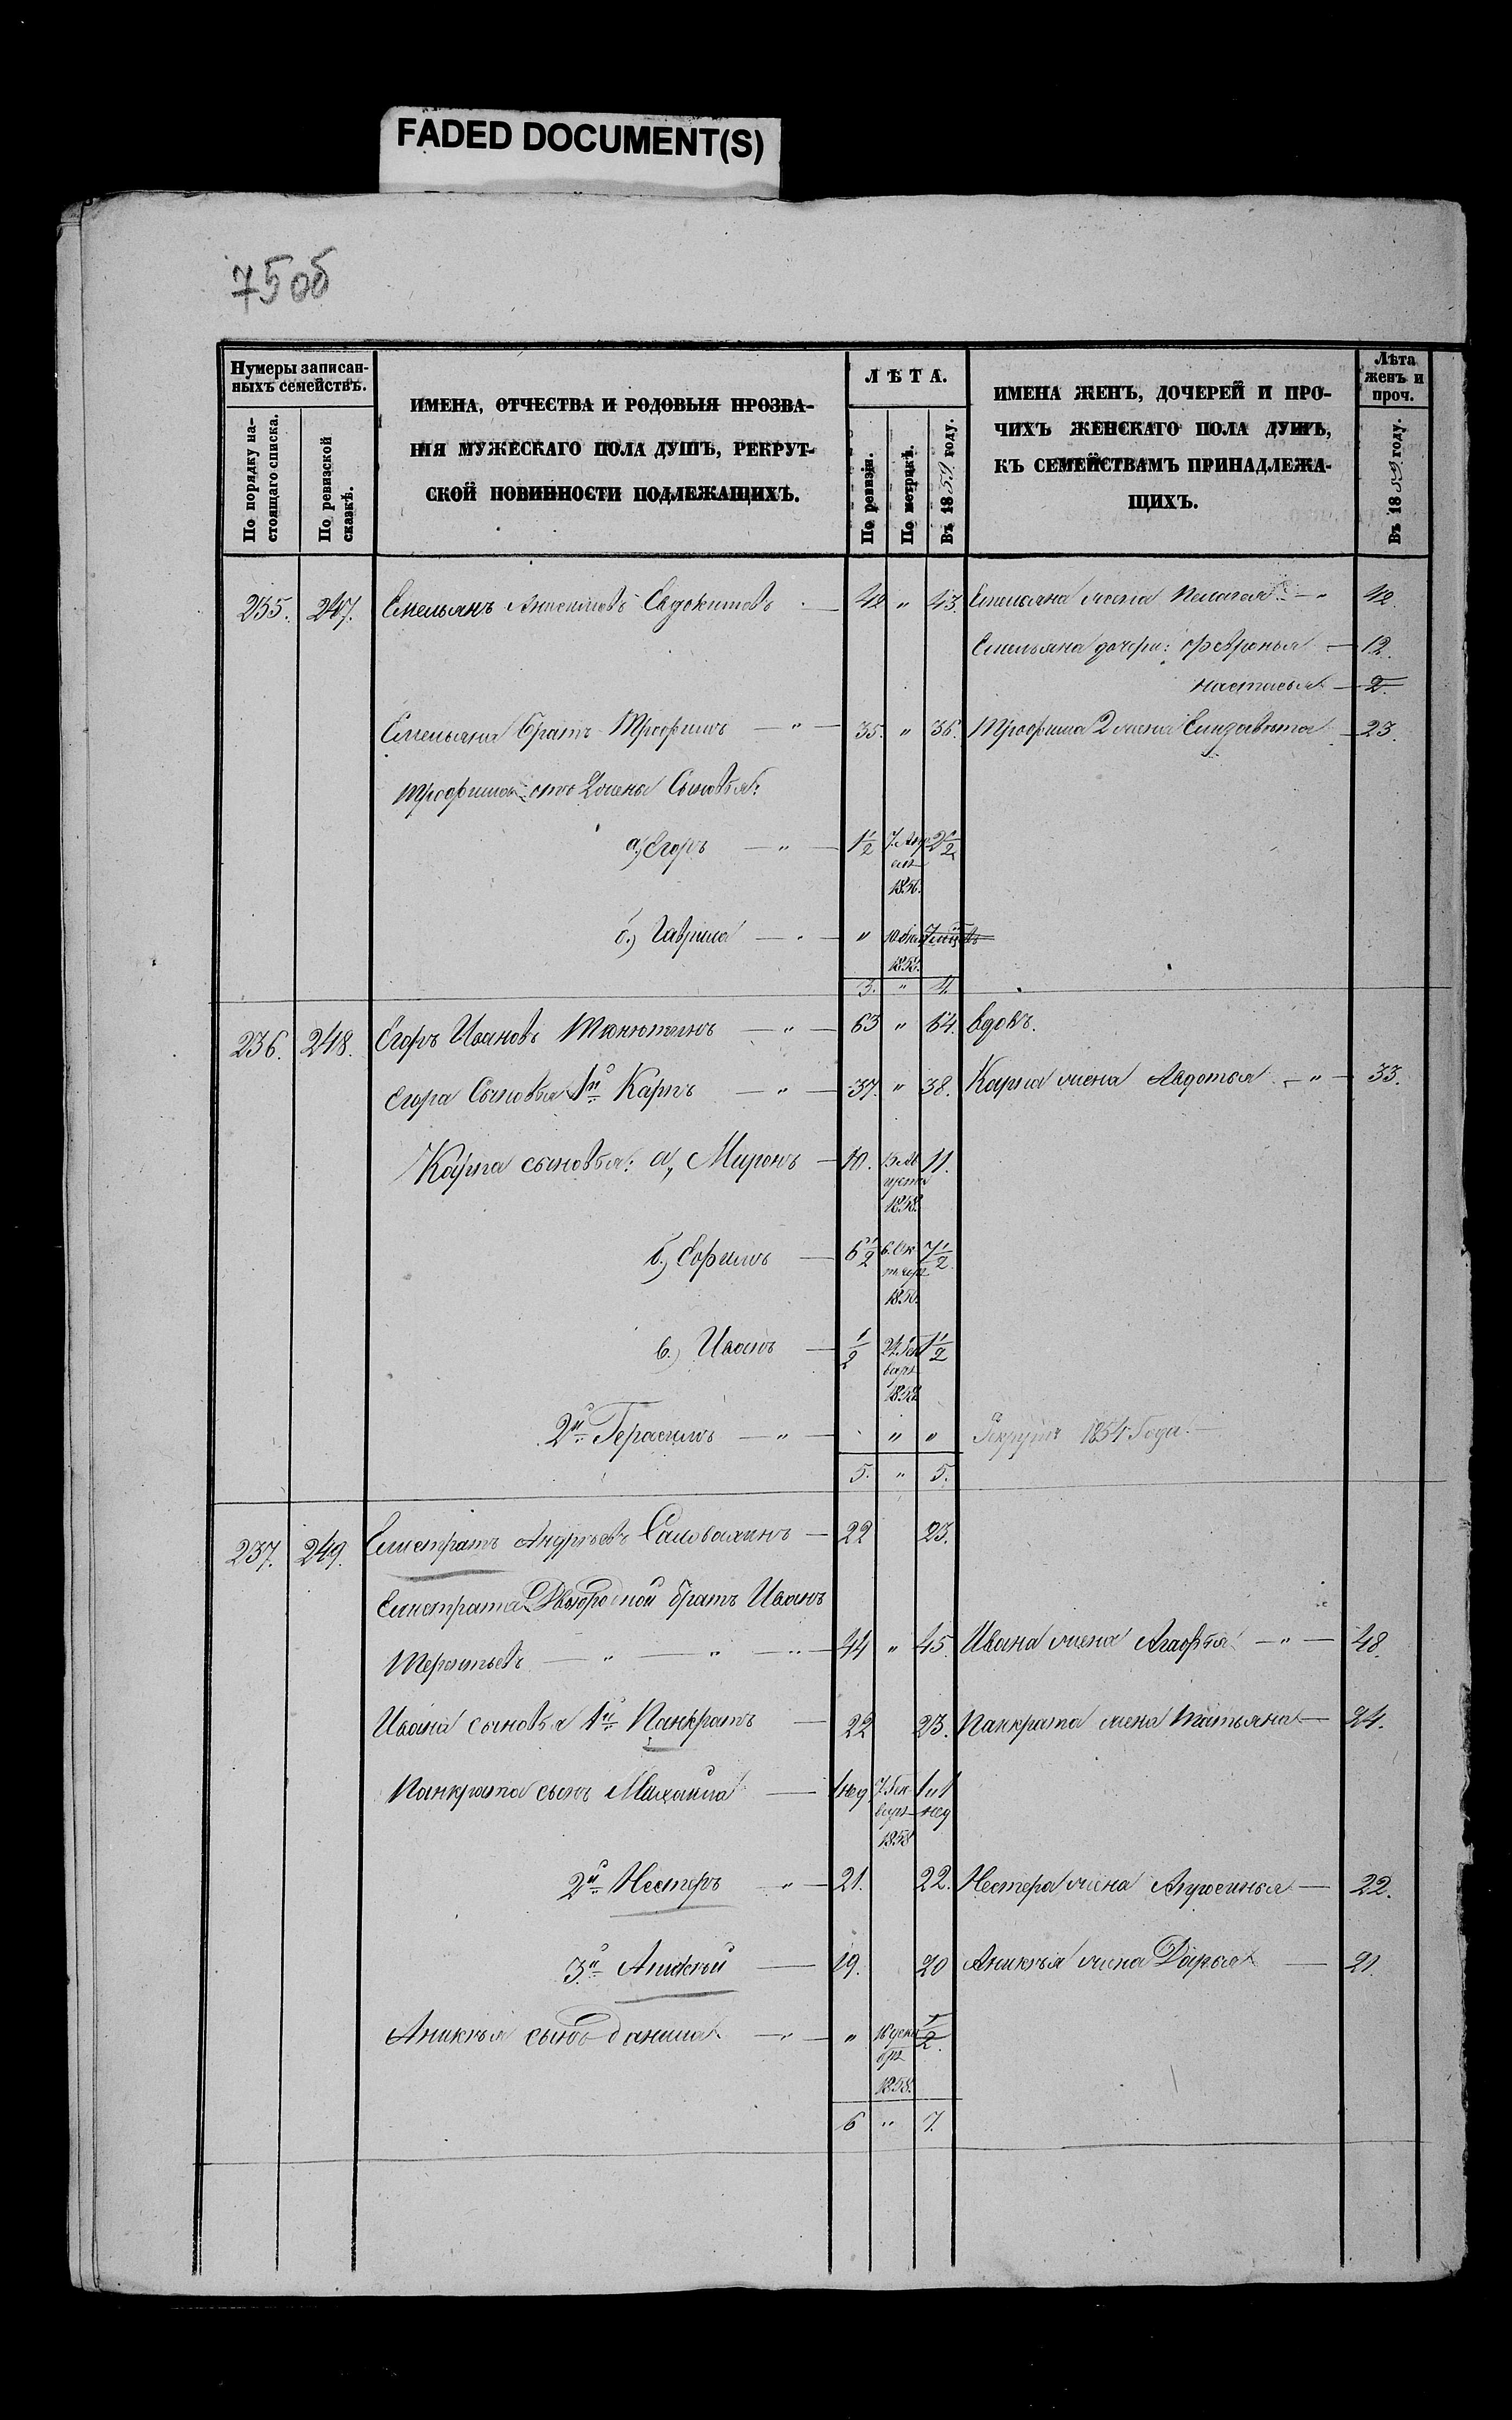 FADED DOCUMENT(S)
75об
Нумеры записан-
ныхъ семействъ.
По порядку на-
стоящаго списка.
По ревизской
сказкѣ.
ИМЕНА, ОТЧЕСТВА И РОДОВЫЯ ПРОЗВА-
НІЯ МУЖЕСКАГО ПОЛА ДУШЪ, РЕКРУТ-
СКОЙ ПОВИННОСТИ ПОДЛЕЖАЩИХЪ.
ЛѢТА.
По ревизіи.
По метрикѣ.
Въ 1859 году.
ИМЕНА ЖЕНЪ, ДОЧЕРЕЙ И ПРО-
ЧИХЪ ЖЕНСКАГО ПОЛА ДУШЪ,
КЪ СЕМЕЙСТВАМЪ ПРИНАДЛЕЖА-
ЩИХЪ.
Лѣта
женъ и
проч.
Въ 1859 году.
235. 247. Емельянъ Евдокимовъ — 42 " 43. Емельяна жена Пелагея — " 42.
Емельяна дочери: Февронья — 12.
Настасья — 2.
Емельяна братъ Трофимъ — " — 35. " 36. Трофима 2 жена Елизавета — 23.
Трофима отъ 2 жены Сыновья:
а) Егоръ — " — 1½ 7. Апр 2½
еля
1856.
б.) Гаврила — " — "
3. " 4.
236. 248. Егоръ Ивановъ Тюнюткинъ — " — 63 " 64. вдовъ.
Егора Сыновья 1й Карпъ — " — 37. " 38. Карпа жена Авдотья — " — 33.
Карпа сыновья: а, Миронъ — 10. 11.
густа
1848.
б.) Ефимъ — 6½ 6. Ок 7½
тября
1850.
в.) Иванъ — ½ 24. Ген 1½
варя
1858
2й Герасимъ — " — " " Рекрутъ 1854 Года. —
5. " 5.
237. 249. Елистратъ Андреевъ — 22 23.
Елистрата Двоюродной братъ Иванъ
Терентьевъ — " — " — " — 44 " 45. Ивана жена Агафья — " — 48.
Ивана сыновья 1й Панкратъ — 22 23. Панкрата жена Татьяна — 24.
Панкрата сынъ Михаила — 1нед 7. Ген 1 и 1
варя нед
1858
2й Нестеръ — " — 21. 22. Нестера жена Апросинья — 22.
3й Аникѣй — 19. 20 Аникѣя жена Дарья — 21.
Аникѣя сынъ Данила — " — " декя ½
бря
1858.
6 " 7.